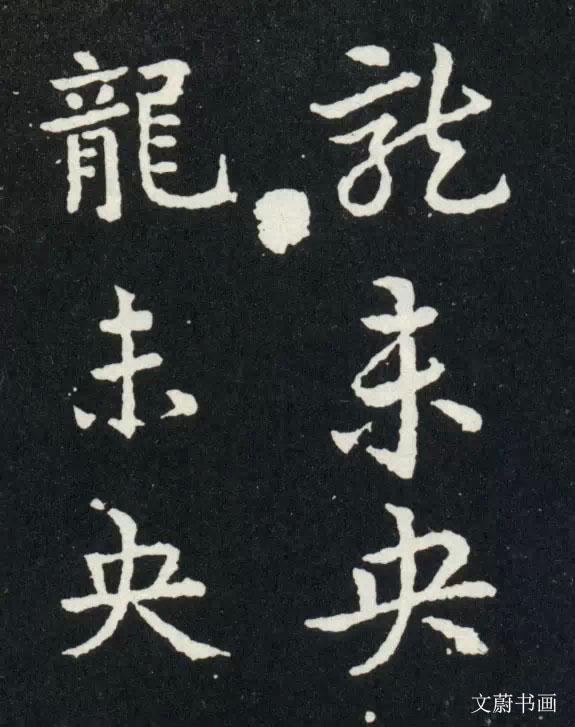 龍未央
龍未央
文蔚书画